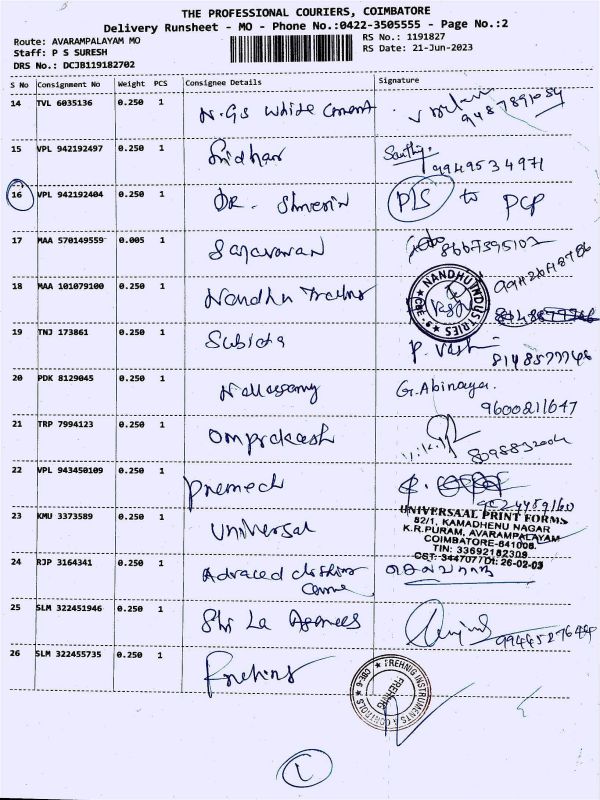 THE PROFESSIONAL COURIERS, COIMBATORE
Delivery Runsheet - MO - Phone No.:0422-3505555 - Page No.:2
Route: AVARAMPALAYAM MO
Staff: P S SURESH
DRS No.: DCJB119182702
RS No.: 1191827
RS Date: 21-Jun-2023
S No Consignment No Weight PCS Consignee Details Signature
14 TVL 6035136 0.250 1 N.Gs White Cement 9487891054
15 VPL 942192497 0.250 1 Sridhar Santhy. 9949534971
16 VPL 942192404 0.250 1 DR. Shrerin PLS to PCP
17 MAA 570149559 0.005 1 Saravanan 8667395102
18 MAA 101079100 0.250 1 Nandhu Traders NANDHU INDUSTRIES CBE-9
19 TNJ 173861 0.250 1 Subida P. Vash 8148577746
20 PDK 8129045 0.250 1 Nallasamy G. Abinaya. 9600211647
21 TRP 7994123 0.250 1 Omprakash 8098832004
22 VPL 943450109 0.250 1 Premech
23 KMU 3373589 0.250 1 Universal
UNIVERSAAL PRINT FORMS
82/1, KAMADHENU NAGAR
K.R.PURAM, AVARAMPALAYAM
COIMBATORE-641006.
TIN: 33692182309
CST: 344707 / Dt: 26-02-03
24 RJP 3164341 0.250 1 Advaced
25 SLM 322451946 0.250 1 Shi La Agencees 9944527644
26 SLM 322455735 0.250 1 Frehins FREHNIG INSTRUMENTS & CONTROLS CBE-6 FREHNIG